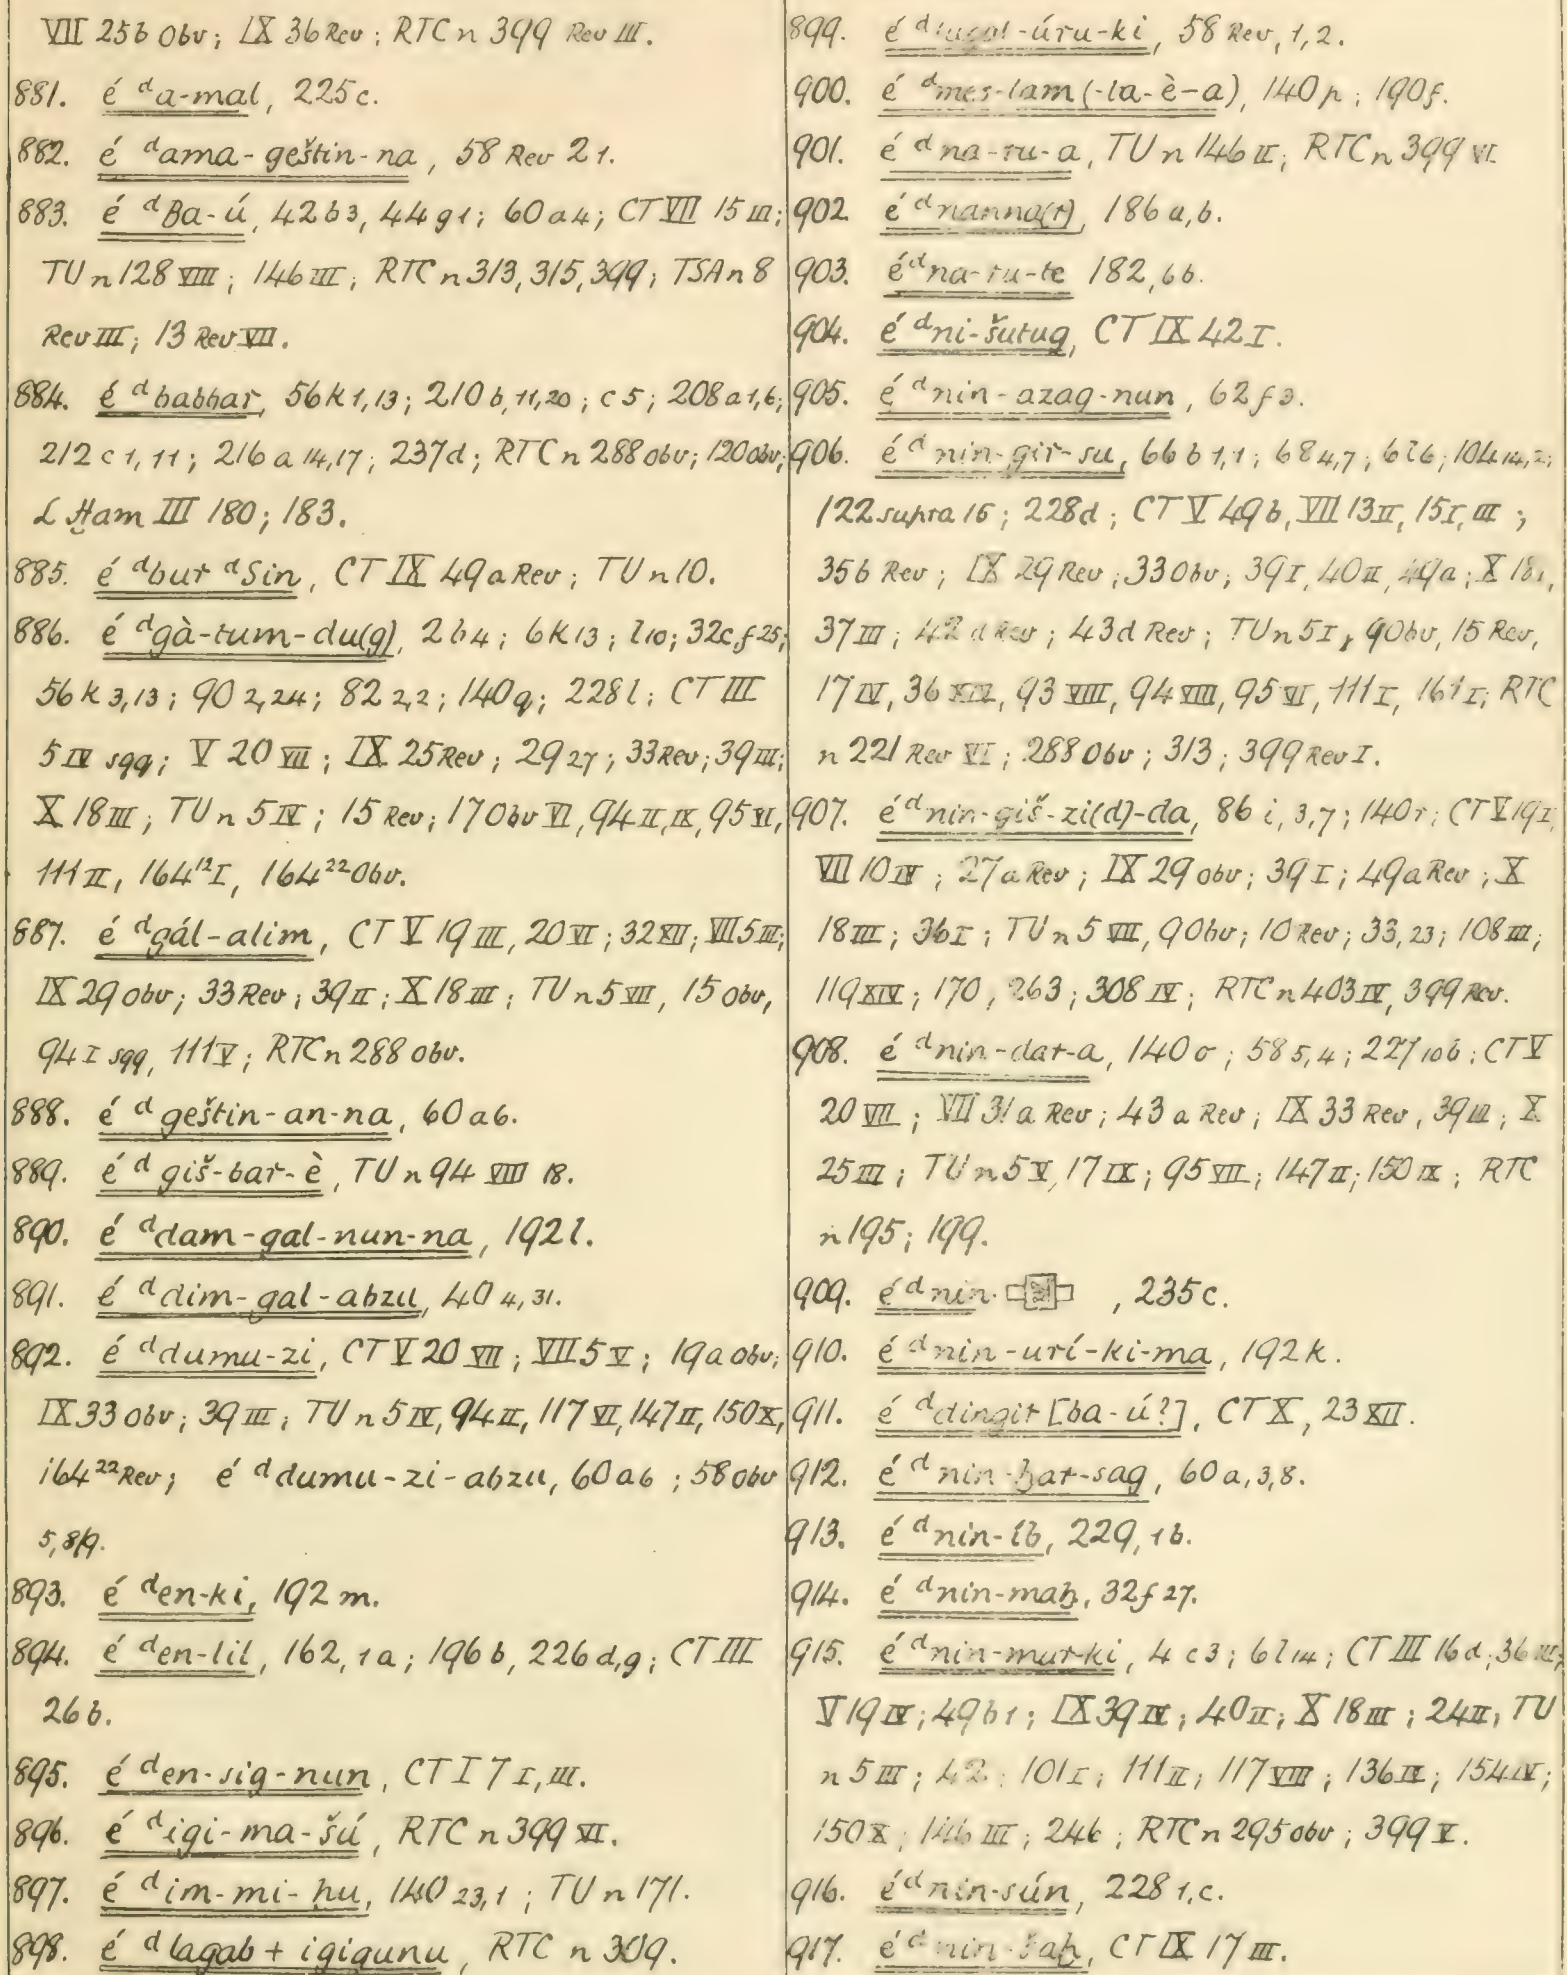 VII 25b Obv; IX 36 Rev; RTC n 399 Rev III.
881. é ᵈa-mal, 225c.
882. é ᵈama-geštin-na, 58 Rev 21.
883. é ᵈBa-ú, 42b3, 44g1; 60a4; CT VII 15 III;
TU n 128 VIII; 146 III; RTC n 313, 315, 399; TSA n 8
Rev III; 13 Rev VII.
884. é ᵈbabbar, 56k1,13; 210b,11,20; c5; 208a1,6;
212c1,11; 216a14,17; 237d; RTC n 288 obv; 120 obv;
L Ḫam III 180; 183.
885. é ᵈbur ᵈSin, CT IX 49a Rev; TU n 10.
886. é ᵈgà-tum-du(g), 2b4; 6k13; l10; 32c,f25;
56k3,13; 90 2,24; 82 2,2; 140q; 228l; CT III
5 IV sqq; V 20 VII; IX 25 Rev; 29 27; 33 Rev; 39 III;
X 18 III; TU n 5 IV; 15 Rev; 17 Obv VI, 94 II, IX, 95 VI,
111 II, 164¹² I, 164²² Obv.
887. é ᵈgál-alim, CT V 19 III, 20 VI; 32 XII; VII 5 III;
IX 29 obv; 33 Rev; 39 II; X 18 III; TU n 5 VIII, 15 obv,
94 I sqq, 111 V; RTC n 288 obv.
888. é ᵈ geštin-an-na, 60a6.
889. é ᵈ giš-bar-è, TU n 94 VIII 18.
890. é ᵈdam-gal-nun-na, 192l.
891. é ᵈdim-gal-abzu, 40 4,31.
892. é ᵈdumu-zi, CT V 20 VII; VII 5 V; 19a obv;
IX 33 obv; 39 III; TU n 5 IV, 94 II, 117 VI, 147 II, 150 X,
164²² Rev; é ᵈdumu-zi-abzu, 60a6; 58 obv
5,8/9.
893. é ᵈen-ki, 192m.
894. é ᵈen-lil, 162,1a; 196b, 226d,g; CT III
26b.
895. é ᵈen-sig-nun, CT I 7 I, III.
896. é ᵈigi-ma-šú, RTC n 399 VI.
897. é ᵈim-mi-ḫu, 140 23,1; TU n 171.
898. é ᵈlagab+igigunu, RTC n 309.
899. é ᵈlugal-úru-ki, 58 Rev, 1,2.
900. é ᵈmes-lam(-ta-è-a), 140p; 190f.
901. é ᵈna-ru-a, TU n 146 II; RTC n 399 VI.
902. é ᵈnanna(r), 186a,b.
903. é ᵈna-ru-te 182,6b.
904. é ᵈni-šutug, CT IX 42 I.
905. é ᵈnin-azag-nun, 62f3.
906. é ᵈnin-gír-su, 66b1,1; 68 4,7; 6l6; 104 14,2;
122 supra 16; 228d; CT V 49b, VII 13 II, 15 I, III;
35b Rev; IX 29 Rev; 33 Obv; 39 I, 40 II, 49a; X 18 I,
37 III; 42d Rev; 43d Rev; TU n 5 I, 9 Obv, 15 Rev,
17 IV, 36 XIV, 93 VIII, 94 VIII, 95 VI, 111 I, 161 I; RTC
n 221 Rev VI; 288 Obv; 313; 399 Rev I.
907. é ᵈnin-giš-zi(d)-da, 86i,3,7; 140r; CT V 19 I,
VII 10 IV; 27a Rev; IX 29 obv; 39 I; 49a Rev; X
18 III; 36 I; TU n 5 VIII, 9 Obv; 10 Rev; 33,23; 108 III;
119 XIV; 170, 263; 308 IV; RTC n 403 IV, 399 Rev.
908. é ᵈnin-dar-a, 140o; 58 5,4; 227 10b; CT V
20 VII; VII 31a Rev; 43a Rev; IX 33 Rev, 39 III; X
25 III; TU n 5 V, 17 IX; 95 VII; 147 II; 150 IX; RTC
n 195; 199.
909. é ᵈnin- , 235c.
910. é ᵈnin-urí-ki-ma, 192k.
911. é ᵈdingir [ba-ú?], CT X, 23 XII.
912. é ᵈnin-ḫar-sag, 60a,3,8.
913. é ᵈnin-íb, 229,1b.
914. é ᵈnin-maḫ, 32f27.
915. é ᵈnin-mar-ki, 4c3; 6l14; CT III 16d; 36
V 19 IV; 49b1; IX 39 IV; 40 II; X 18 III; 24 II; TU
n 5 III; 42; 101 I; 111 II; 117 VIII; 136 II; 154 IV;
150 X; 146 III; 246; RTC n 295 obv; 399 V.
916. é ᵈnin-sún, 228 1,c.
917. é ᵈnin-šaḫ, CT IX 17 III.